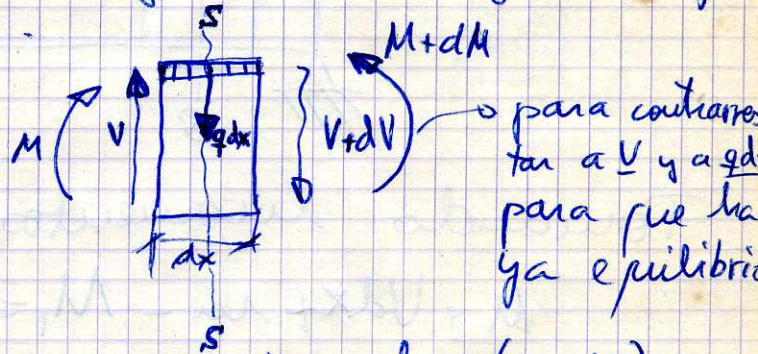 S
M+dM
M
V
qdx
V+dV
para contrarres
tar a V y a qd
para que ha
ya equilibrio
dx
S